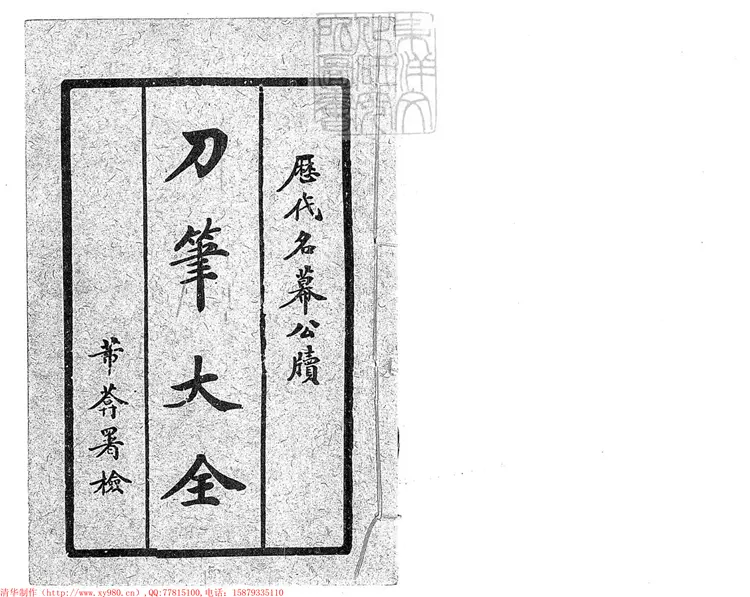 東洋文
化研究
所圖書
歷代名幕公牘
刀筆大全
署檢
清华制作（http://www.xy980.cn）,QQ:77815100,电话：15879335110